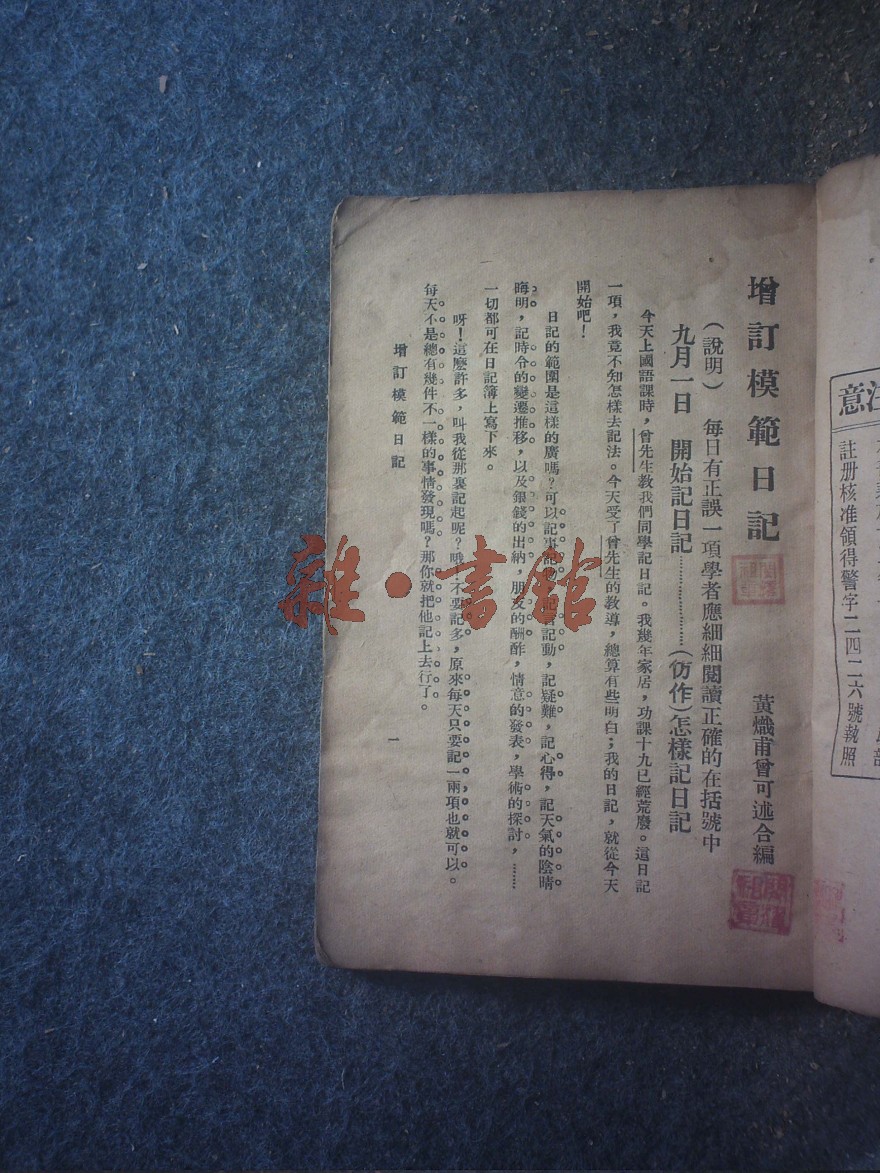 注意
註册核准領得警字二四二六號執照
增訂模範日記
黃熾甫曾可述合編
（說明）　每日有正誤一項學者應細細閱讀正確的在括號中
九月一日　開始記日記…………（仿作）怎樣記日記
今天上國語課時，曾先生教我們同學記日記。我幾年家居，功課十九已經荒廢。這日記
一項，我竟不知怎樣去記法。今天受了曾先生的教導，總算有些明白；我的日記，就從今天
開始吧！
日記的範圍是這樣的廣嗎？可以記事記言記動，記疑難，記心得，記天氣的陰晴
晦明，記時令的變遷推移，以及銀錢的出納，朋友的酬酢，情意的發表，學術的探討，……
一切都可在日記簿上寫下來。
呀！這麼許多，叫我從那裏記起呢？哦！不要記多，原來每天只要記一兩項也就可以。
每天不是總有幾件不一樣的事情發現嗎？那你就把他記上去行了。
增訂模範日記
一
雜·書館